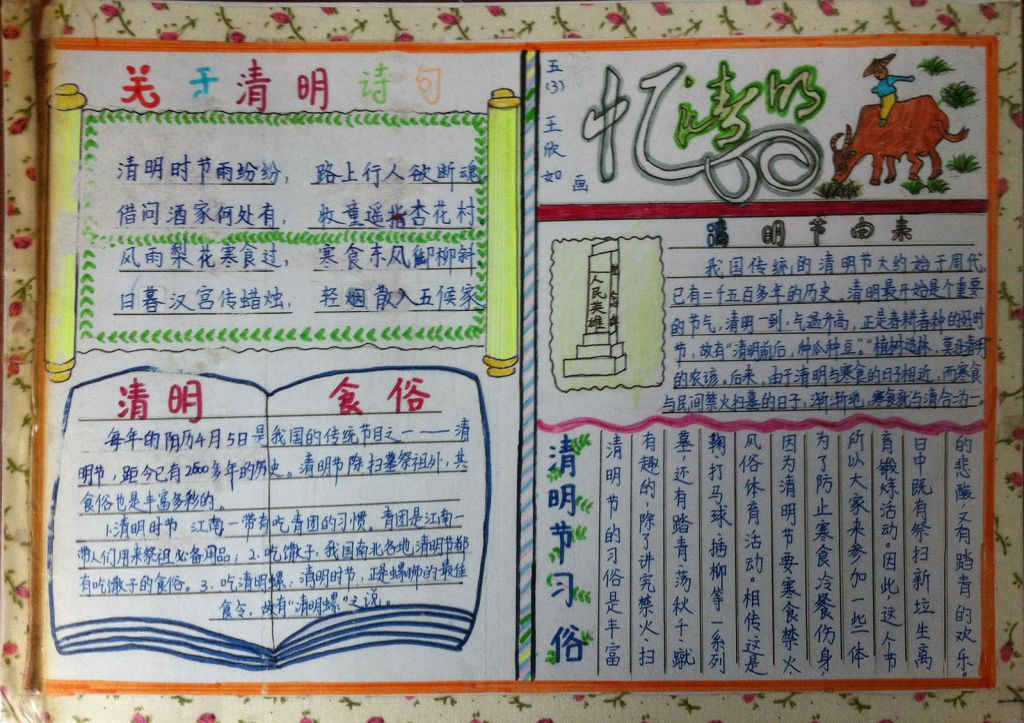 关于清明诗句
清明时节雨纷纷， 路上行人欲断魂
借问酒家何处有， 牧童遥指杏花村
风雨梨花寒食过， 寒食东风御柳斜
日暮汉宫传蜡烛， 轻烟散入五候家
清明 食俗
每年的阳历4月5日是我国的传统节日之一——清
明节，距今已有2500多年的历史。清明节除扫墓祭祖外，其
食俗也是丰富多彩的。
1.清明时节 江南一带有吃青团的习惯。青团是江南一
带人们用来祭祖必备用品；2.吃馓子，我国南北各地，清明节都
有吃馓子的食俗。3.吃清明螺：清明时节，正是螺蛳的最佳
食令，故有“清明螺”之说。
五(3) 王欣如 画
忆清明
清明节由来
人民英雄
我国传统的清明节大约始于周代
已有二千五百多年的历史。清明最开始是个重要
的节气，清明一到，气温升高，正是春耕春种的好时
节，故有“清明前后，种瓜种豆。”“植树造林，莫过清明
的农谚。后来，由于清明与寒食的日子相近，而寒食
与民间禁火扫墓的日子，渐渐地，寒食就与清合为一。
清明节习俗
清明节的习俗是丰富
有趣的，除了讲究禁火、扫
墓，还有踏青、荡秋千、蹴
鞠、打马球、插柳等一系列
风俗体育活动。相传这是
因为清明节要寒食禁火，
为了防止寒食冷餐伤身，
所以大家来参加一些体
育锻炼活动。因此，这人节
日中既有祭扫新坟生离
的悲酸，又有踏青的欢乐。